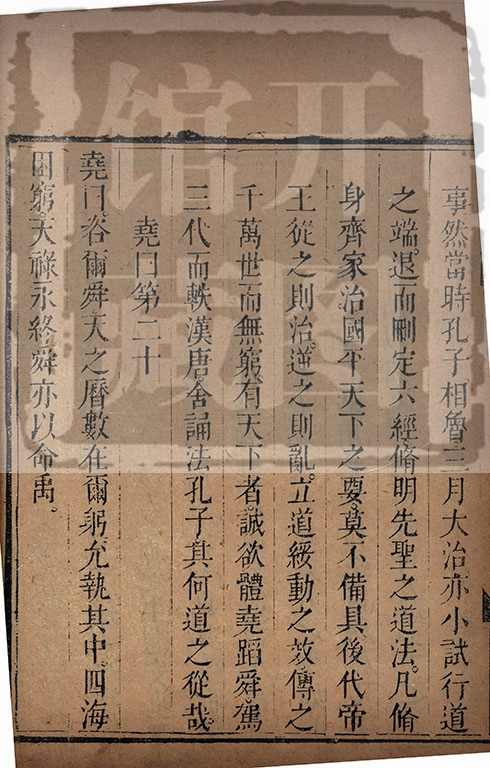 事然當時孔子相魯三月大治亦小試行道
之端退而刪定六經脩明先聖之道法。凡脩
身齊家治國平天下之要。莫不備具。後代帝
王從之則治。逆之則亂。立道綏動之效。傳之
千萬世而無窮。有天下者。誠欲體堯蹈舜。駕
三代而軼漢唐。舍誦法孔子。其何道之從哉。
堯曰第二十
堯曰。咨爾舜。天之曆數在爾躬。允執其中。四海
困窮。天祿永終。舜亦以命禹。